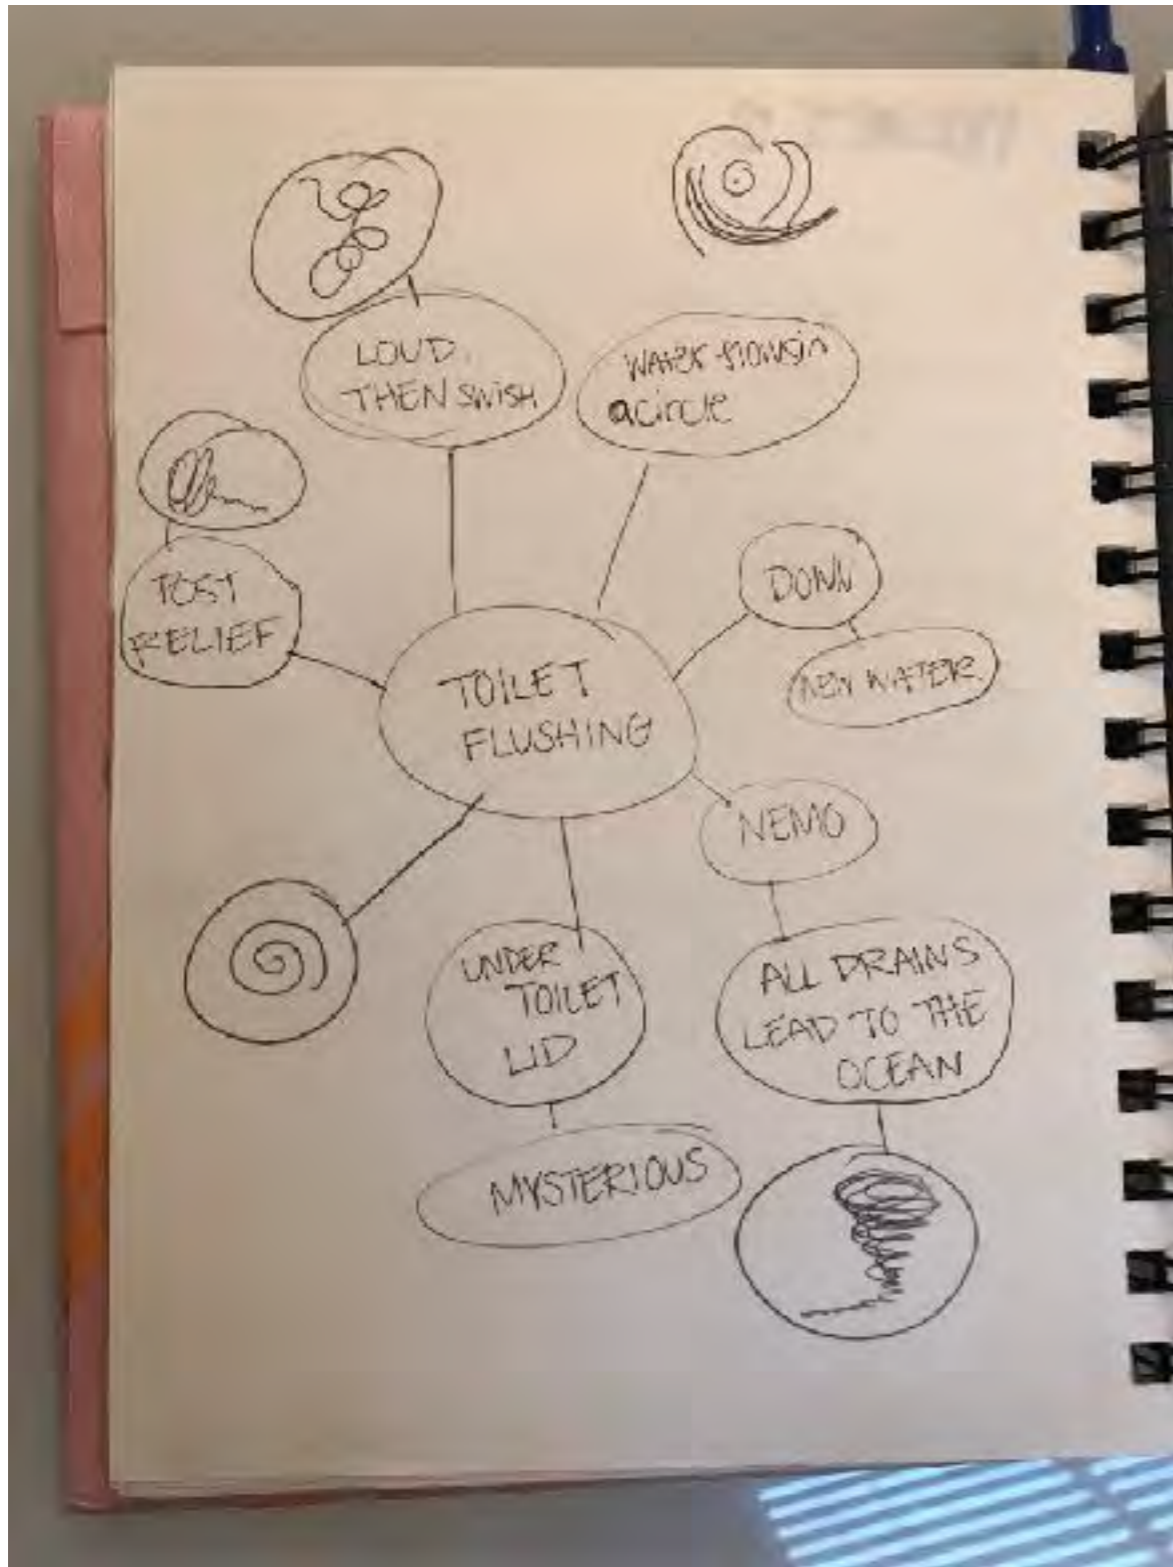 LOUD
THEN SWISH
WATER flows in
a circle
POST
RELIEF
DOWN
NEW WATER
TOILET
FLUSHING
NEMO
UNDER
TOILET
LID
ALL DRAINS
LEAD TO THE
OCEAN
MYSTERIOUS